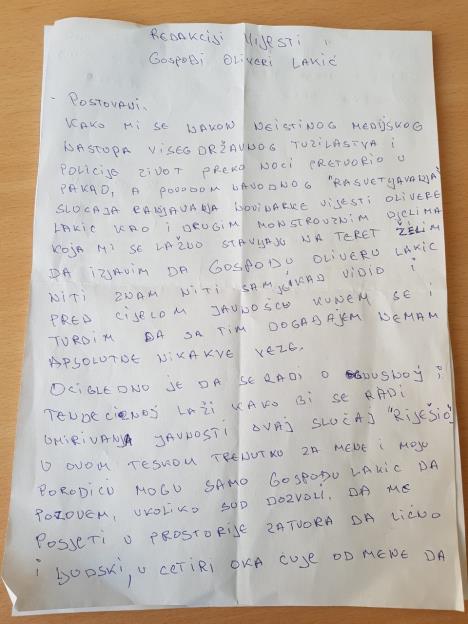 REDAKCIJI VIJESTI I
GOSPOĐI OLIVERI LAKIĆ
- POSTOVANI,
KAKO MI SE NAKON NEISTINOG MEDIJSKOG
NASTUPA VISEG DRŽAVNOG TUŽILASTVA I
POLICIJE ZIVOT PREKO NOCI PRETVORIO U
PAKAO, A POVODOM NAVODNOG "RASVETJAVANJA"
SLUCAJA RANJAVANJA NOVINARKE VIJESTI OLIVERE
LAKIC KAO I DRUGIM MONSTRUOZNIM DJELIMA
KOJA MI SE LAŽNO STAVLJAJU NA TERET ŽELIM
DA IZJAVIM DA GOSPOĐU OLIVERU LAKIC
NITI ZNAM NITI SAM JE IKAD VIDIO I
PRED CIJELOM JAVNOŠĆU KUNEM SE I
TVRDIM DA SA TIM DOGAĐAJEM NEMAM
APSOLUTNE NIKAKVE VEZE.
OCIGLEDNO JE DA SE RADI O GNUSNOJ I
TENDECIOZNOJ LAŽI KAKO BI SE RADI
UMIRIVANJA JAVNOSTI OVAJ SLUČAJ "RIJEŠIO"
U OVOM TESKOM TRENUTKU ZA MENE I MOJU
PORODICU MOGU SAMO GOSPOĐU LAKIC DA
POZOVEM, UKOLIKO SUD DOZVOLI, DA ME
POSJETI U PROSTORIJE ZATVORA DA LIČNO
I LJUDSKI, U CETIRI OKA ČUJE OD MENE DA